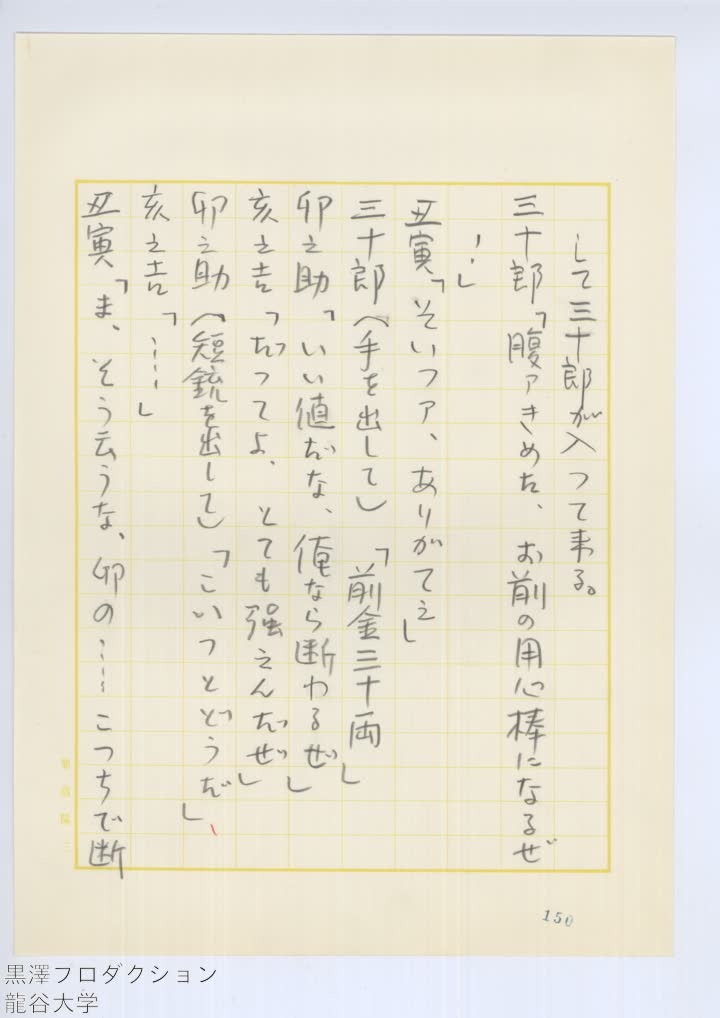 して三十郎が入つて来る。
三十郎「腹ァきめた、お前の用心棒になるぜ
……」
丑寅「そいつァ、ありがてえ」
三十郎（手を出して）「前金三十両」
卯之助「いい値だな、俺なら断わるぜ」
亥之吉「だつてよ、とても強えんだぜ」
卯之助（短銃を出して）「こいつとどうだ」
亥之吉「……」
丑寅「ま、そう云うな、卯の……こつちで断
150
黒澤プロダクション
龍谷大学